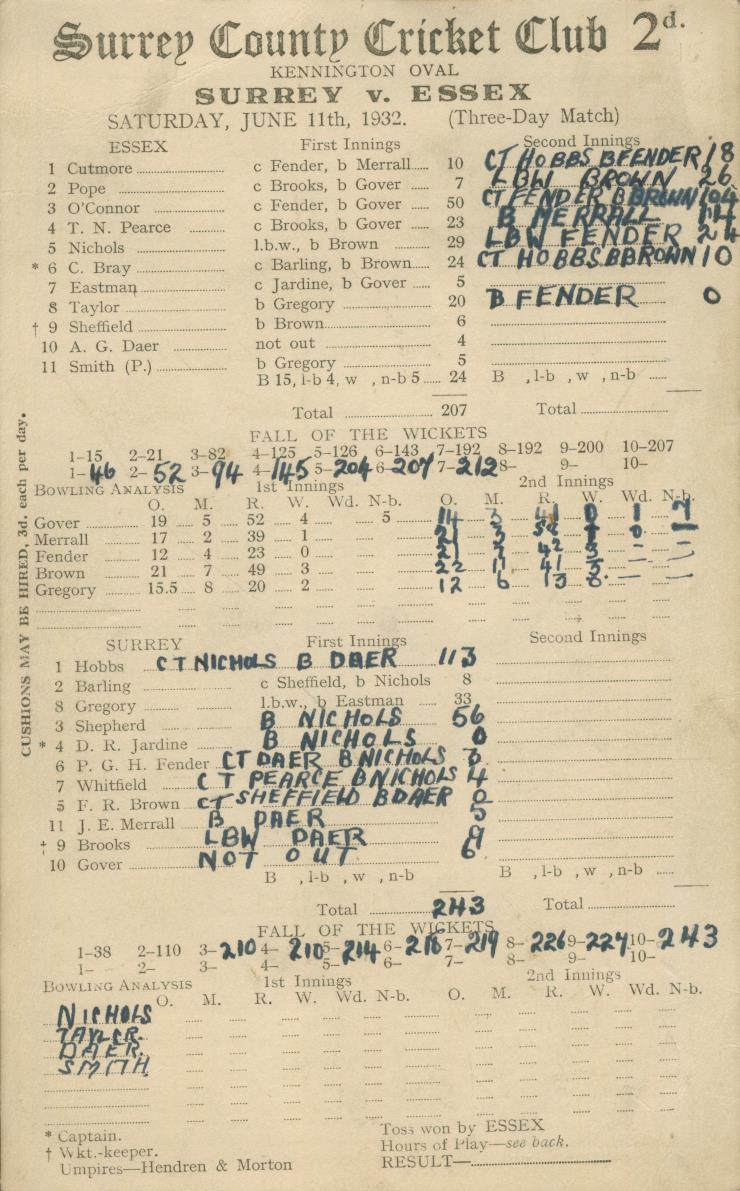 Surrey County Cricket Club 2d.
KENNINGTON OVAL
SURREY v. ESSEX
SATURDAY, JUNE 11th, 1932. (Three-Day Match)
ESSEX First Innings Second Innings
1 Cutmore c Fender, b Merrall 10 CT HOBBS B FENDER 18
2 Pope c Brooks, b Gover 7 LBW BROWN 26
3 O'Connor c Fender, b Gover 50 CT FENDER B BROWN 104
4 T. N. Pearce c Brooks, b Gover 23 B MERRALL 14
5 Nichols l.b.w., b Brown 29 LBW FENDER 24
* 6 C. Bray c Barling, b Brown 24 CT HOBBS B BROWN 10
7 Eastman c Jardine, b Gover 5
8 Taylor b Gregory 20 B FENDER 0
† 9 Sheffield b Brown 6
10 A. G. Daer not out 4
11 Smith (P.) b Gregory 5
B 15, l-b 4, w , n-b 5 24 B , l-b , w , n-b
Total 207 Total
FALL OF THE WICKETS
1-15 2-21 3-82 4-125 5-126 6-143 7-192 8-192 9-200 10-207
1-46 2-52 3-94 4-145 5-204 6-207 7-212 8- 9- 10-
BOWLING ANALYSIS 1st Innings 2nd Innings
O. M. R. W. Wd. N-b. O. M. R. W. Wd. N-b.
Gover 19 5 52 4 5 14 3 41 0 1
Merrall 17 2 39 1 21 3 0
Fender 12 4 23 0 21 42 3
Brown 21 7 49 3 22 11 41 3
Gregory 15.5 8 20 2 12 6 13
CUSHIONS MAY BE HIRED, 3d. each per day.
SURREY First Innings Second Innings
1 Hobbs CT NICHOLS B DAER 113
2 Barling c Sheffield, b Nichols 8
8 Gregory l.b.w., b Eastman 33
3 Shepherd B NICHOLS 56
* 4 D. R. Jardine B NICHOLS 0
6 P. G. H. Fender CT DAER B NICHOLS 3
7 Whitfield CT PEARCE B NICHOLS 4
5 F. R. Brown CT SHEFFIELD B DAER 0
11 J. E. Merrall B DAER 5
† 9 Brooks LBW DAER 9
10 Gover NOT OUT 6
B , l-b , w , n-b B , l-b , w , n-b
Total 243 Total
FALL OF THE WICKETS
1-38 2-110 3-210 4-210 5-214 6-218 7-219 8-226 9-227 10-243
1- 2- 3- 4- 5- 6- 7- 8- 9- 10-
BOWLING ANALYSIS 1st Innings 2nd Innings
O. M. R. W. Wd. N-b. O. M. R. W. Wd. N-b.
NICHOLS
TAYLOR.
DAER.
SMITH
* Captain.
† Wkt.-keeper.
Umpires—Hendren & Morton
Toss won by ESSEX
Hours of Play—see back.
RESULT—